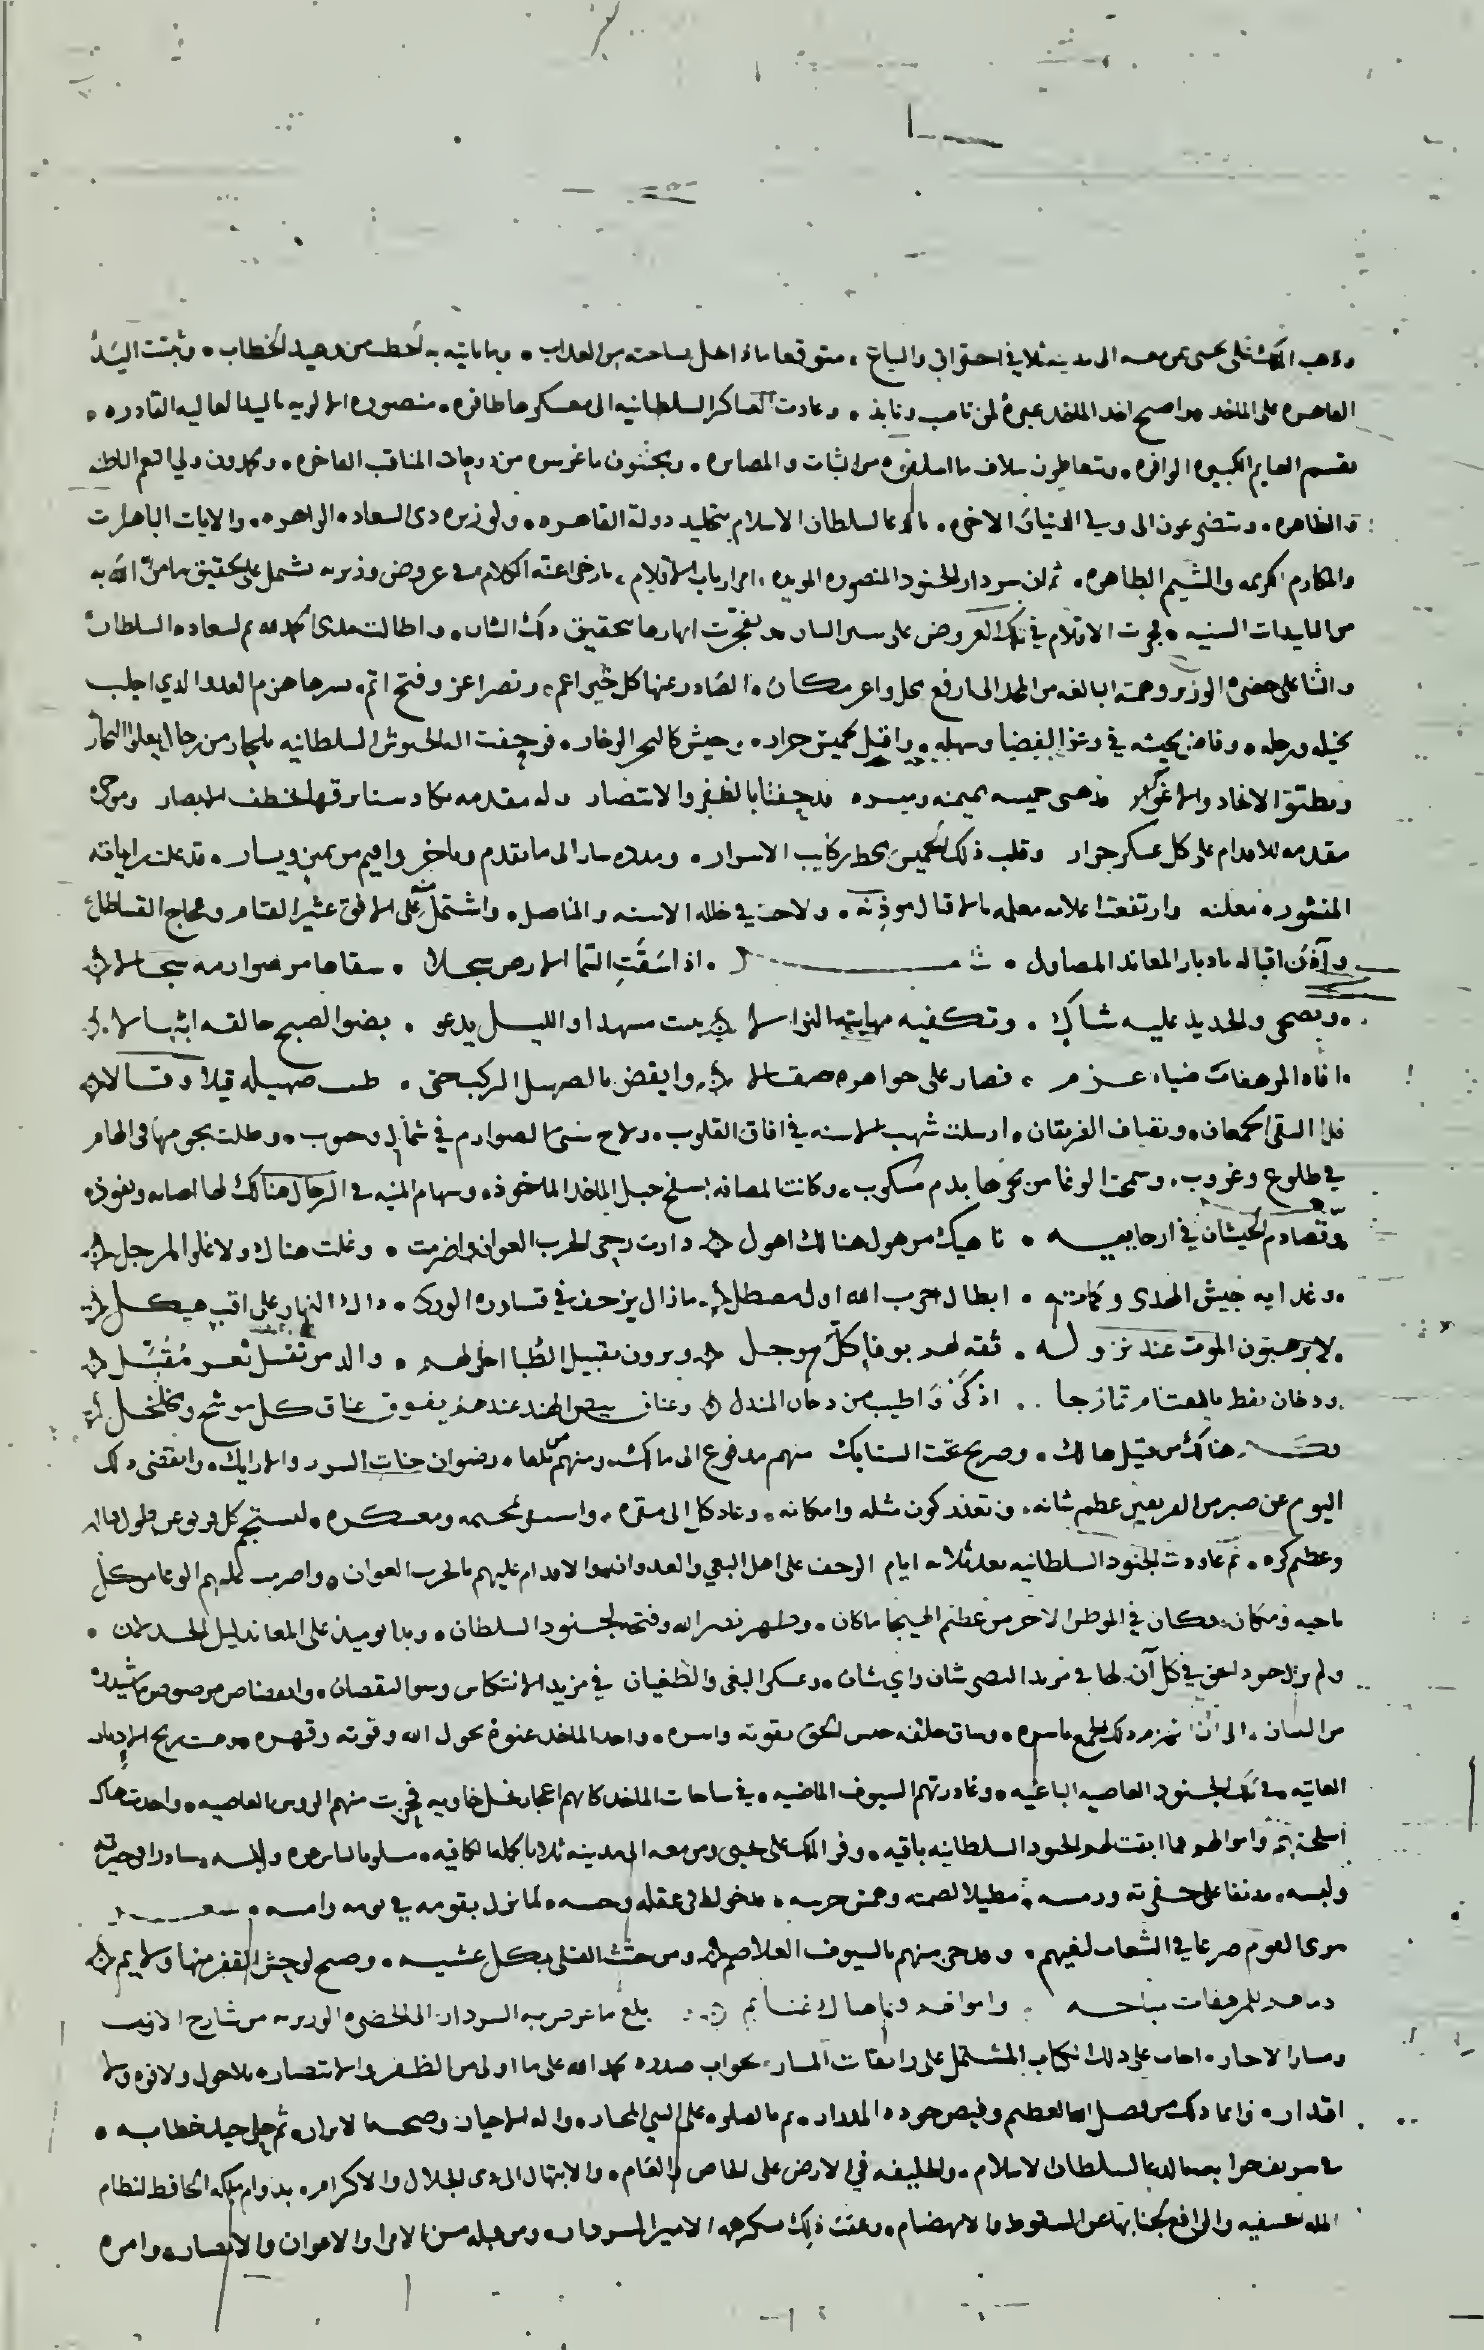 وذهب الملك على يحيى بمن معه الى مدينة ثلا في احتراق والتياع ، متوقعا ماذا يحل بساحته من العذاب ، وما ياتيه به لحظه من وعيد الخطاب ، وثبتت اليد
القاهره على الملخد واصبح اخذ الملخد عبرة لمن ناصب ونابذ ، وعادت العساكر السلطانيه الى معسكرها ظافره ، منصورة الالويه باليد العاليه القادره ،
تقسم الغنايم الكثيره الوافره ، وتتعاطون سلاف ما اسلفوه من الثبات والمصابره ، ويجتنون ما غرسوه من درجات المناقب الفاخره ، ويحمدون ولي النعم الباطنه
والظاهره ، ويتضرعون الى رب الدنيا والاخره ، بالدعا لسلطان الاسلام بتخليد دولة القاهره ، ولوزيره ذى السعاده الزاهره ، والايات الباهرات
والمكارم الكريمه والشيم الطاهره ، ثم ان سردار الجنود المنصوره المويده ، امر ارباب الاقلام ، بارخا اعنة الكلام في عروض وزيريه تشمل على تحقيق ما من الله به
من التاييدات السنيه ، فجرت الاقلام في تلك العروض على سنن السان وتفجرت انهارها بتحقيق ذلك الشان ، واطالت مدى الحمد لله ثم لسعادة السلطان
والثنا على حضرة الوزير وهمته البالغه من المجد الى ارفع محل واعز مكان ، الصادر عنها كل خير اعم ، ونصر اعز وفتح اتم ، بشرحها هزم العدو الذي اجلب
بخيله ورجله ، وفاض بجيشه في وعر الفضا وسهله ، واقبل بخميس جرار ، وجيش كالبحر الزخار ، فزحفت اليه الجيوش السلطانيه بابحار من رجال يعلوا التيار
وبطبق الاغاد والاغوار فدهى خميسه بميمنة وميسره قد حفتا بالظفر والانتصار وله مقدمه يكاد سنا برقها يخطف الابصار وموخره
مقدمه للاقدام على كل عسكر جرار وقلب ذلك الخميس محط ركايب الاسرار ، ومدده سار الى ما تقدم وتاخر واقيم من يمين ويسار ، قد علت راياته
المنشوره معلنه وارتفعت اعلامه معلمه بالاقبال موذنه ، ولاحت في خلاله الاسنه والمناصل ، واشتمل على الافق عثير القتام وعجاج القساطل
وآذن اقباله بادبار المعاند المصاول ، شعر ، اذا سقت السما الارض سجلا ، سقاها من صوارمه سجالا
، ويضحى والحديد عليه شاك ، وتكفيه مهابته النزالا يبيت مسهدا والليل يدعو ، بضو الصبح خالقه ابتهالا
، افاد المرهفات ضياء عزم ، فصار على جواهره صقالا وايقض بالصهيل الركب حتى ، ظن صهيله قيلا وقالا
فلما التقى الجمعان ، وتقابل الفريقان ، ارسلت شهب الاسنه في افاق القلوب ، ولاح سنا الصوارم في شمال وجنوب ، وظلت نجومها في الهام
في طلوع وغروب ، وسمحت الوغا من نحرها بدم مسكوب ، وكانت المصافه بسفح جبل الملخد الماخوذ ، وسهام المنيه في الرجال هنالك لها اصابه ونفوذ
وتصادم الجيشان في ارجاييه ، ناهيك من هول هنالك اهول دارت رحى الحرب العوان واضرمت ، وغلت هناك ولا غلو المرجل
، وغدا به جيش الهدى وكماته ، ابطال حرب الله اول مصطلي ما زال يزحف في قساورة الورى ، ذاك النهار على اقب هيكل
لا يرهبون الموت عند نزوله ، ثقه لهم بوفا كل موجل ويرون تقبيل الظبا احلى لهم ، والذ من تقبيل ثغر مقبل
ودخان نفط بالقتام تمازجا ، اذكى واطيب من دخان المندل وعناق بيض الهند عندهم يفوق عناق كل موشح ومخلخل
فكم هناك من قتيل هالك ، وصريع تحت السنابك منهم مدفوع الى مالك ومنهم من تلقاه رضوان جنات السرر والارايك ، وانقضى ذلك
اليوم عن صبر من الفريقين عظم شانه ، وتعذر كون مثله وامكانه ، وعاد كل الى مقره ، واستقر بمخيمه ومعسكره ، ليستجم كل فريق عن هول
وعظيم كره ، ثم عاودت الجنود السلطانيه بعد ثلاث ايام الزحف على اهل البغي والعدوان الاقدام عليهم بالحرب العوان ، واضرمت عليهم الوغا من كل
ناحيه ومكان وكان في الموطن الاخر من عظيم الهيجا ما كان ، وظهر نصر الله وفتحه لجنود السلطان ، وبدا يوميذ على المعاند ليل الخذلان ،
ولم يزل جنود الحق في كل آن لها في مزيد النصر شان واي شان ، وعسكر البغي والطغيان في مزيد الانتكاس وسو النقصان ، وانقضاض مرصوص ما شيدوه
من البنيان ، الى ان انهزم ذلك الجمع باسره ، وساق خلفه جيش الحق بقوته واسره ، واخذ الملخد عنوة بحول الله وقوته وقهره وهبت ريح الادبار
العاتيه في تلك الجنود العاصيه الباغيه ، وغادرتهم السيوف الماضيه ، في ساحات الملخد كانهم اعجاز نخل خاويه فجزت منهم الروس العاصيه ، واخذت هناك
اسلحتهم واموالهم فما ابقت لهم الجنود السلطانيه باقيه ، وفر الملك على يحيى ومن معه الى مدينه ثلا
ولبسه ، مدنفا على حفرته ورمسه ، مطيلا لصمته وهمس جرسه ، مدخولا في عقله وحسه ، لما نزل بقومه في يومه وامسه ، شعر
ترى القوم صرعا في الشعاب لفيهم ، وقد جز منهم بالسيوف الغلاصم ومن جثث القتلى بكل عشيه ، وصبح لوحش القفر منها ولايم
دماهم للمرهفات مباحه ، واموالهم في ما هنالك غنايم بلغ ما عرض به السردار الى الحضره الوزيريه من شارح الانبا
وسار الاخبار ، اجاب على ذلك الكتاب المشتمل على رايقات المسار ، بجواب صدره بحمد الله على ما اولى من الظفر والانتصار ، بلا حول ولا قوه ولا
اقتدار ، وانما ذلك من فضل الله العظيم وفيض جوده المدرار ، ثم بالصلوه على النبي المختار ، واله الاخيار ، وصحبه الابرار ، ثم جلى جياد خطابه ،
الدعا لسلطان الاسلام ، والخليفه في الارض على الخاص والعام ، والابتهال الى ذى الجلال والاكرام ، بدوام ملكه الحافظ لنظام
المله الحنيفيه والرافع بجنابها عن السقوط والانهضام ، وعقب ذلك بشكر همه الامير السردار ، ومن قبله من الامرا والاعوان والانصار ، وامره